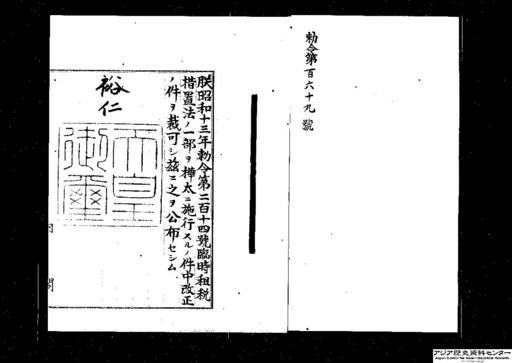 勅令第百六十九號
朕昭和十三年勅令第二百十四號臨時租税
措置法ノ一部ヲ樺太ニ施行スルノ件中改正
ノ件ヲ裁可シ茲ニ之ヲ公布セシム
裕仁
天皇
御璽
内閣
アジア歴史資料センター
Japan Center for Asian Historical Records